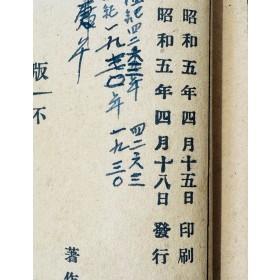 昭和五年四月十五日 印刷
昭和五年四月十八日 發行
四二六三
一九三〇
一九七〇年
庚午
版
不
著作